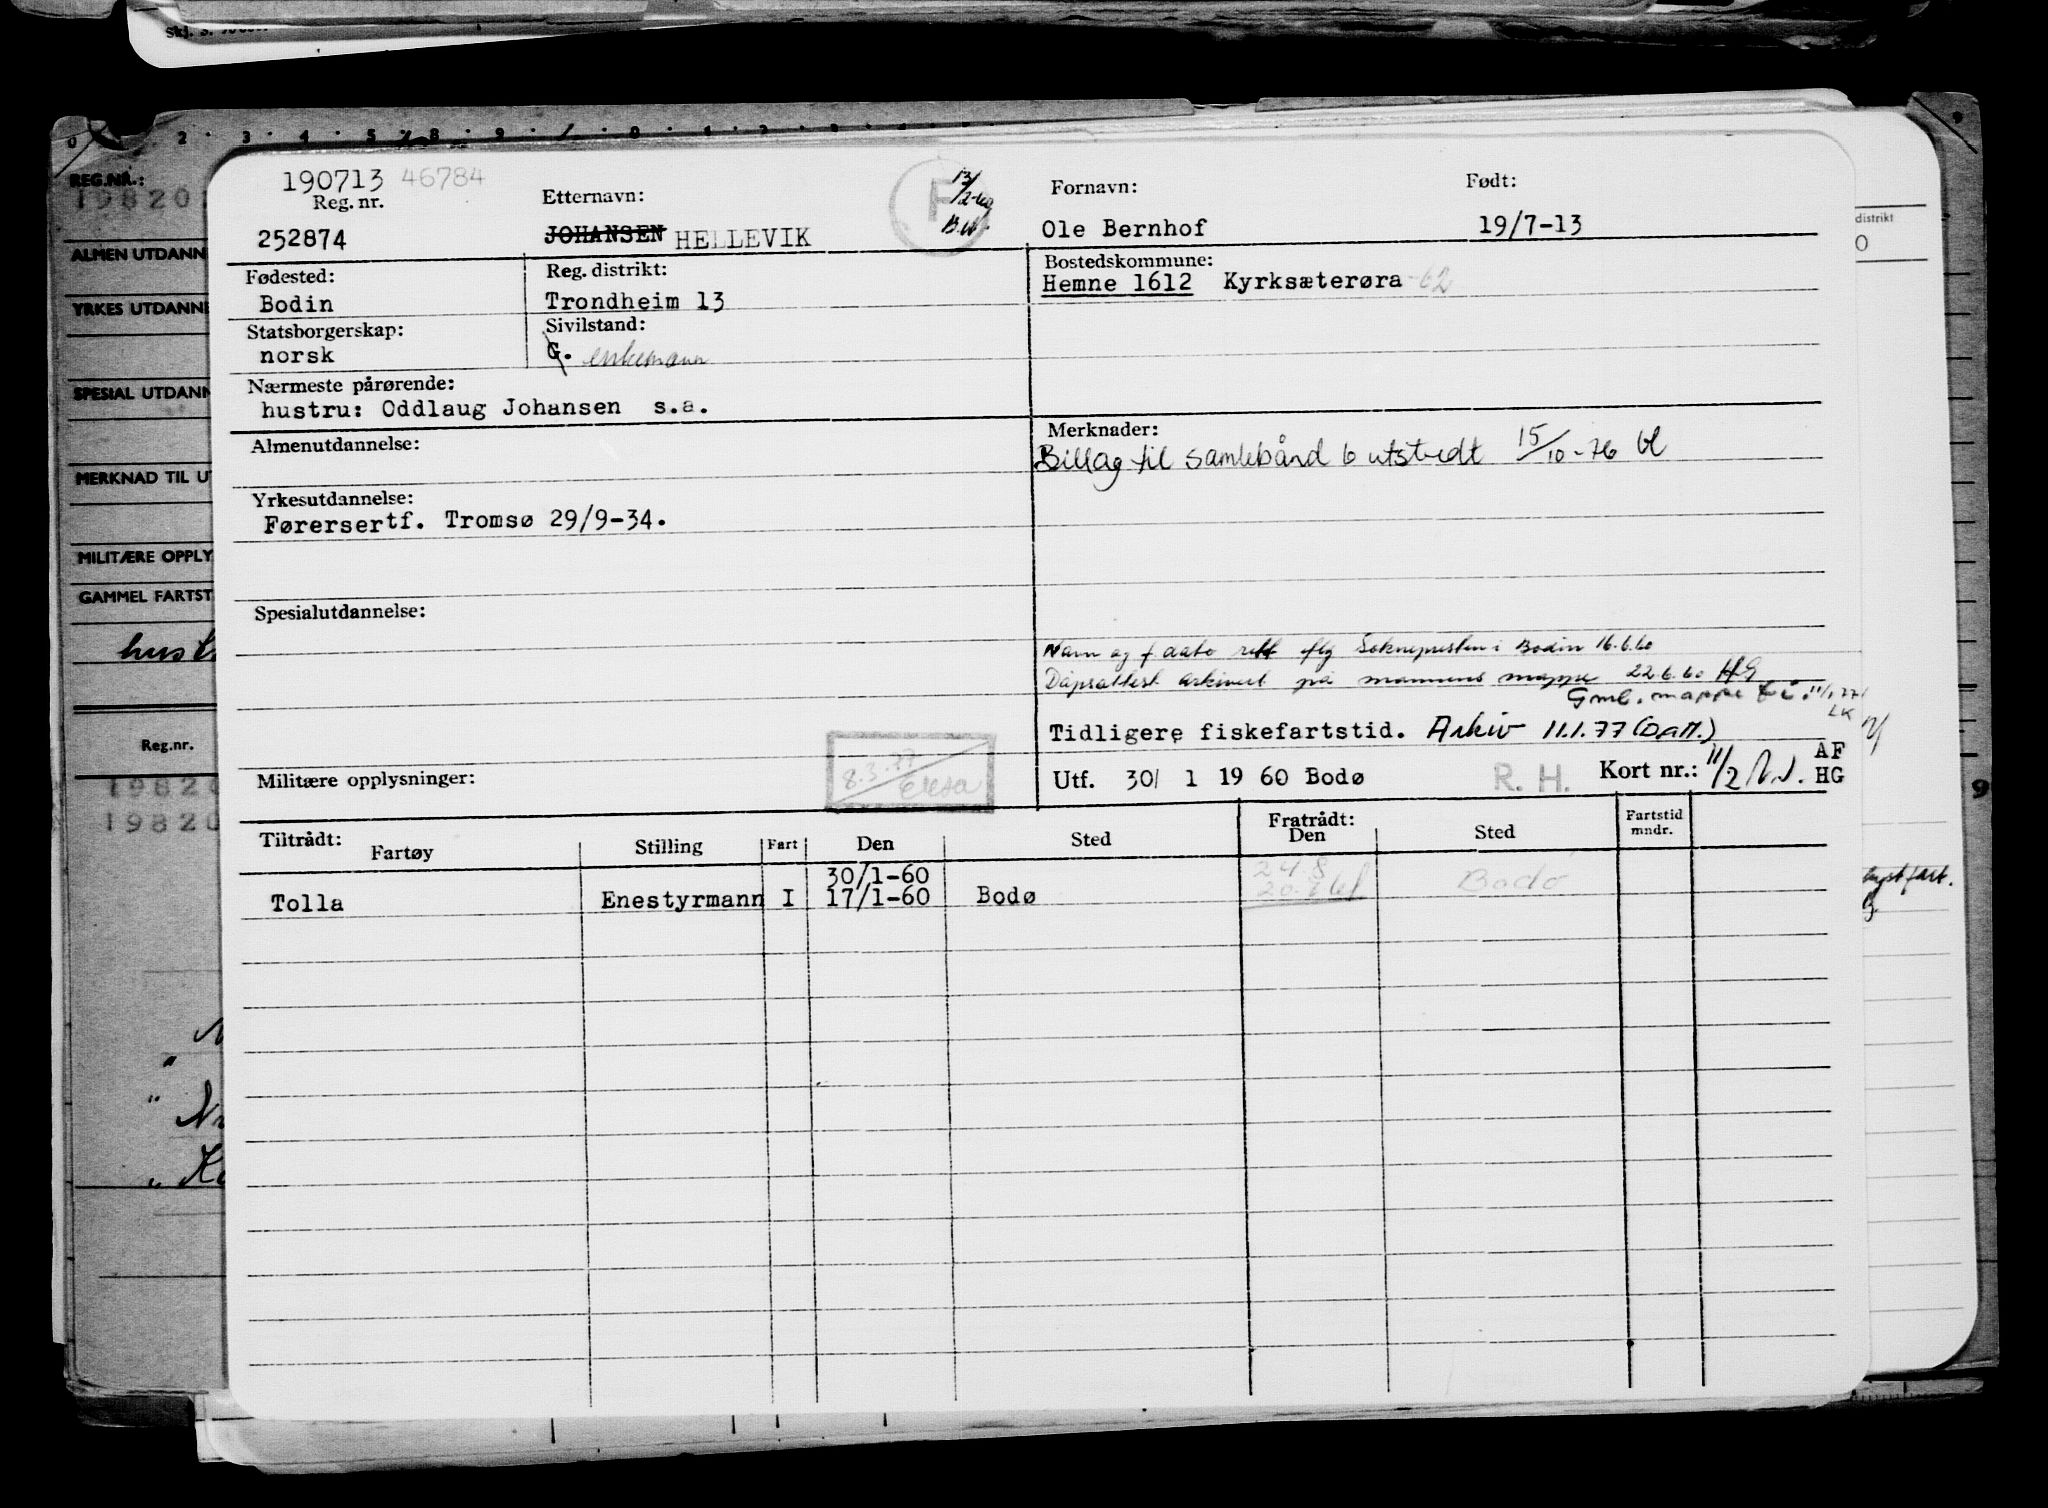 REG.NR.:
19820
ALMEN UTDANN
YRKES UTDANNE
SPESIAL UTDANN
MERKNAD TIL U
MILITÆRE OPPLY
GAMMEL FARTST
Reg.nr.
19820
19820
190713 46784
Reg. nr.
252874
Etternavn:
JOHANSEN HELLEVIK
F
Fornavn:
Ole Bernhof
Født:
19/7-13
Fødested:
Bodin
Reg. distrikt:
Trondheim 13
Bostedskommune:
Hemne 1612 Kyrksæterøra -62
Statsborgerskap:
norsk
Sivilstand:
G. enkemann
Nærmeste pårørende:
hustru: Oddlaug Johansen s.a.
Almenutdannelse:
Merknader:
Billag til samlebånd 6 utstedt 15/10-76
Yrkesutdannelse:
Førersertf. Tromsø 29/9-34.
Spesialutdannelse:
Navn og f.dato rett flg Soknepresten i Bodin 16.6.60
Dåpsattest arkivert på mannens mappe 22.6.60 HG
Gml. mappe
LK
Tidligere fiskefartstid. Arkiv 11.1.77
Militære opplysninger:
8.3.77
Utf. 30/ 1 19 60 Bodø
R. H.
Kort nr.: 11/2
AF
HG
Tiltrådt:
Fartøy
Stilling
Fart
Den
Sted
Fratrådt:
Den
Sted
Fartstid
mndr.
30/1-60
Tolla Enestyrmann I 17/1-60 Bodø
24.8
Bodø
distrikt